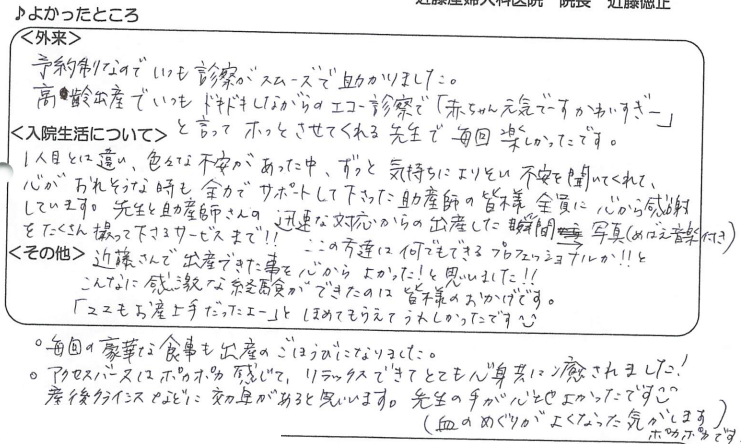 近藤産婦人科医院 院長 近藤徳正
♪よかったところ
<外来>
予約制なのでいつも診察がスムーズで助かりました。
高齢出産でいつもドキドキしながらのエコー診察で「赤ちゃん元気でーすかわいすぎー」
と言ってホッとさせてくれる先生で毎回楽しかったです。
<入院生活について>
1人目とは違い、色々な不安があった中、ずっと気持ちによりそい不安を聞いてくれて、
心がおれそうな時も全力でサポートして下さった助産師の皆様全員に心から感謝
しています。先生と助産師さんの迅速な対応からの出産した瞬間→写真(めばえ音楽付き)
をたくさん撮って下さるサービスまで!!この方達は何でもできるプロフェッショナルか!!と
<その他>
近藤さんで出産できた事を心からよかった!と思いました!!
こんなに感激な経験ができたのは皆様のおかげです。
「ママもお産上手だったエー」とほめてもらえてうれしかったです
○毎回の豪華な食事も出産のごほうびになりました。
○アクセスバースはポカポカ感じて、リラックスできてとても心身共に癒されました!
産後クライシスなどに効果があると思います。先生の手が心地よかったです
(血のめぐりがよくなった気がします)
ポカポカです